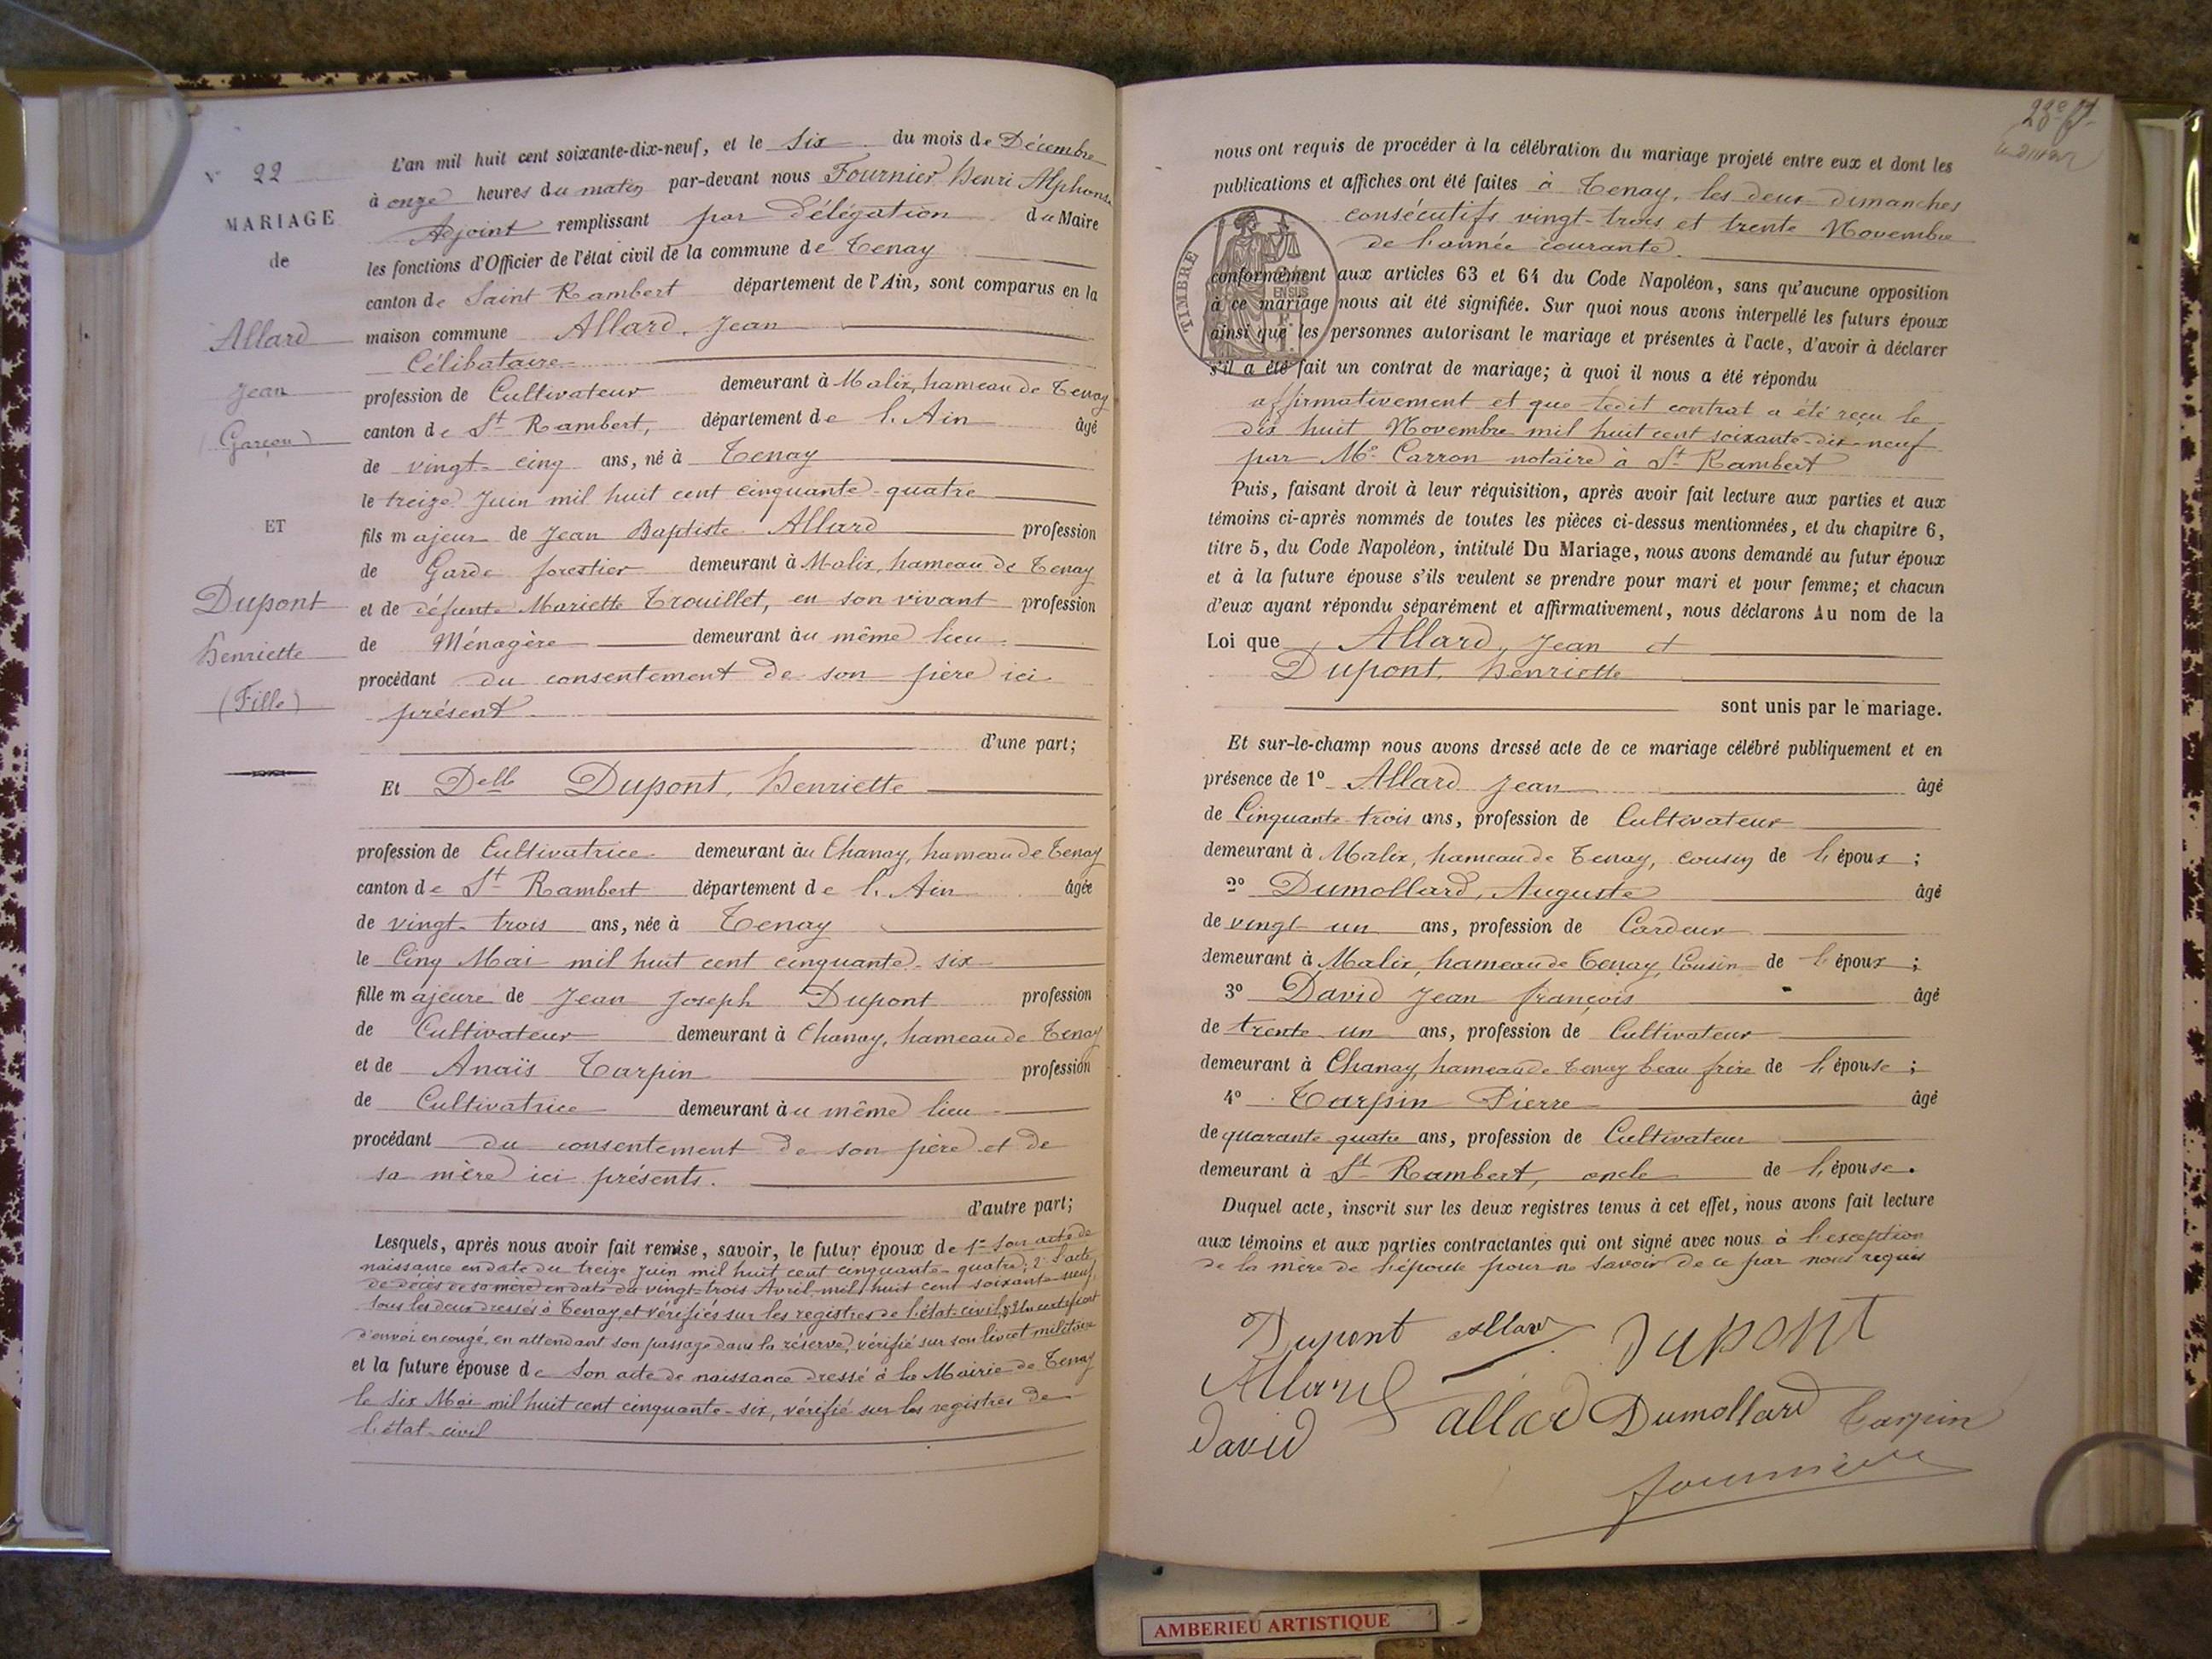 N° 22
MARIAGE
de
Allard
Jean
(Garçon)
ET
Dupont
henriette
(Fille)
L'an mil huit cent soixante-dix-neuf, et le six du mois de Décembre
à onze heures du matin par-devant nous Fournier henri Alphonse
Adjoint remplissant par délégation du Maire
les fonctions d'Officier de l'état civil de la commune de Tenay
canton de Saint Rambert département de l'Ain, sont comparus en la
maison commune Allard, Jean
Célibataire
profession de Cultivateur demeurant à Malix, hameau de Tenay
canton de St Rambert, département de l'Ain âgé
de vingt-cinq ans, né à Tenay
le treize Juin mil huit cent cinquante-quatre
fils majeur de Jean Baptiste Allard profession
de Garde forestier demeurant à Malix, hameau de Tenay
et de défunte Mariette Trouillet, en son vivant profession
de Ménagère demeurant au même lieu
procédant du consentement de son père ici
présent
d'une part;
Et Delle Dupont, henriette
profession de Cultivatrice demeurant au Chanay, hameau de Tenay
canton de St Rambert département de l'Ain âgée
de vingt-trois ans, née à Tenay
le Cinq Mai mil huit cent cinquante-six
fille majeure de Jean Joseph Dupont profession
de Cultivateur demeurant à Chanay, hameau de Tenay
et de Anaïs Tarpin profession
de Cultivatrice demeurant au même lieu
procédant du consentement de son père et de
sa mère ici présents.
d'autre part;
Lesquels, après nous avoir fait remise, savoir, le futur époux de 1° son acte de
naissance en date du treize Juin mil huit cent cinquante-quatre; 2° l'acte
de décès de sa mère en date du vingt-trois Avril mil huit cent soixante-neuf,
tous les deux dressés à Tenay, et vérifiés sur les registres de l'état-civil; 3° Un certificat
d'envoi en congé, en attendant son passage dans la réserve, vérifié sur son livret militaire
et la future épouse de son acte de naissance dressé à la Mairie de Tenay
le six Mai mil huit cent cinquante-six, vérifié sur les registres de
l'état-civil
nous ont requis de procéder à la célébration du mariage projeté entre eux et dont les
publications et affiches ont été faites à Tenay, les deux dimanches
consécutifs vingt-trois et trente Novembre
de l'année courante.
TIMBRE
conformément aux articles 63 et 64 du Code Napoléon, sans qu'aucune opposition
à ce mariage nous ait été signifiée. Sur quoi nous avons interpellé les futurs époux
ainsi que les personnes autorisant le mariage et présentes à l'acte, d'avoir à déclarer
s'il a été fait un contrat de mariage; à quoi il nous a été répondu
affirmativement et que ledit contrat a été reçu le
dix huit Novembre mil huit cent soixante-dix-neuf
par Me Carron notaire à St Rambert
Puis, faisant droit à leur réquisition, après avoir fait lecture aux parties et aux
témoins ci-après nommés de toutes les pièces ci-dessus mentionnées, et du chapitre 6,
titre 5, du Code Napoléon, intitulé Du Mariage, nous avons demandé au futur époux
et à la future épouse s'ils veulent se prendre pour mari et pour femme; et chacun
d'eux ayant répondu séparément et affirmativement, nous déclarons Au nom de la
Loi que Allard, Jean et
Dupont, henriette
sont unis par le mariage.
Et sur-le-champ nous avons dressé acte de ce mariage célébré publiquement et en
présence de 1° Allard Jean âgé
de Cinquante-trois ans, profession de Cultivateur
demeurant à Malix, hameau de Tenay, cousin de l'époux;
2° Dumollard, Auguste âgé
de vingt-un ans, profession de Cardeur
demeurant à Malix, hameau de Tenay, Cousin de l'époux;
3° David Jean françois âgé
de trente-un ans, profession de Cultivateur
demeurant à Chanay, hameau de Tenay beau frère de l'épouse;
4° Tarpin Pierre âgé
de quarante-quatre ans, profession de Cultivateur
demeurant à St Rambert, oncle de l'épouse.
Duquel acte, inscrit sur les deux registres tenus à cet effet, nous avons fait lecture
aux témoins et aux parties contractantes qui ont signé avec nous à l'exception
de la mère de l'épouse pour ne savoir de ce par nous requis
Dupont Allard DUPONT
Allard
allard Dumollard Tarpin
David
fournier
AMBERIEU ARTISTIQUE